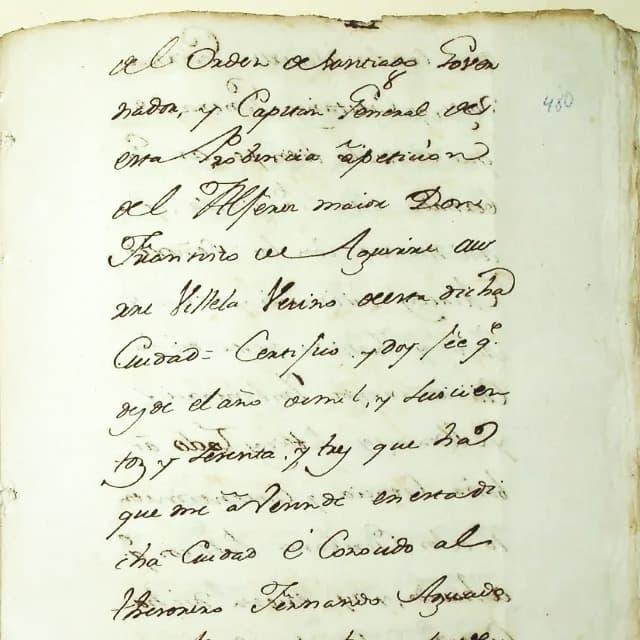 del Orden de santiago Gover
nador, y Capitan General de
480
esta Probincia â peticion
del Alferes maior Don
Francisco de Aguirre
Villela Vesino de esta dicha
Ciudad = Certifico y doy fée q.e
desde el año de mil, y seiscien
tos y setenta y tres que ha
que me â Vesinde en esta di
cha Ciudad é Conosido al
thesorero Fernando Aguado